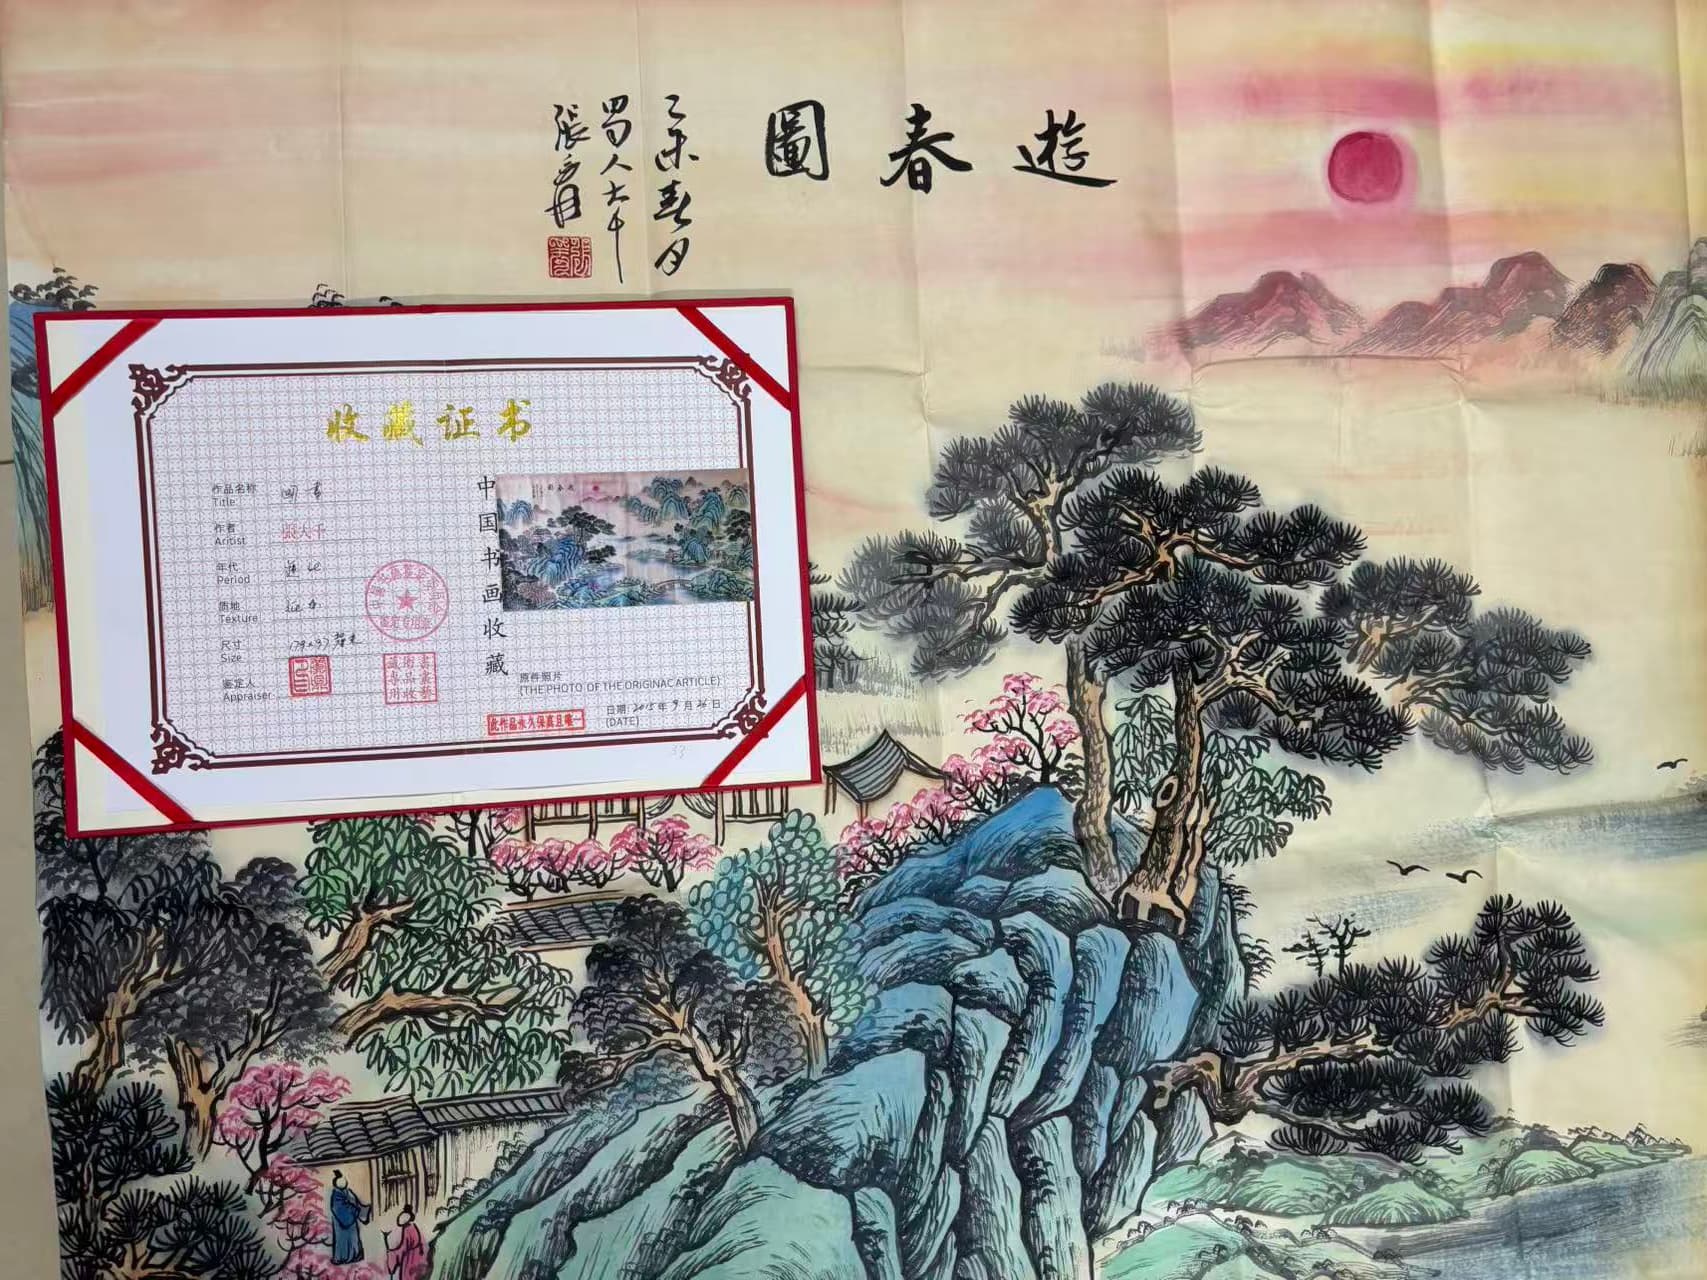 遊春圖
乙未春月
蜀人大千
張爰
收藏证书
作品名称
Title
作者
Aritist
張大千
年代
Period
质地
Texture
尺寸
Size
179×97厘米
鉴定人
Appraiser
中国书画收藏
原件照片
(THE PHOTO OF THE ORIGINAC ARTICLE)
此作品永久保真且唯一
日期:2015年9月26日
(DATE)
33